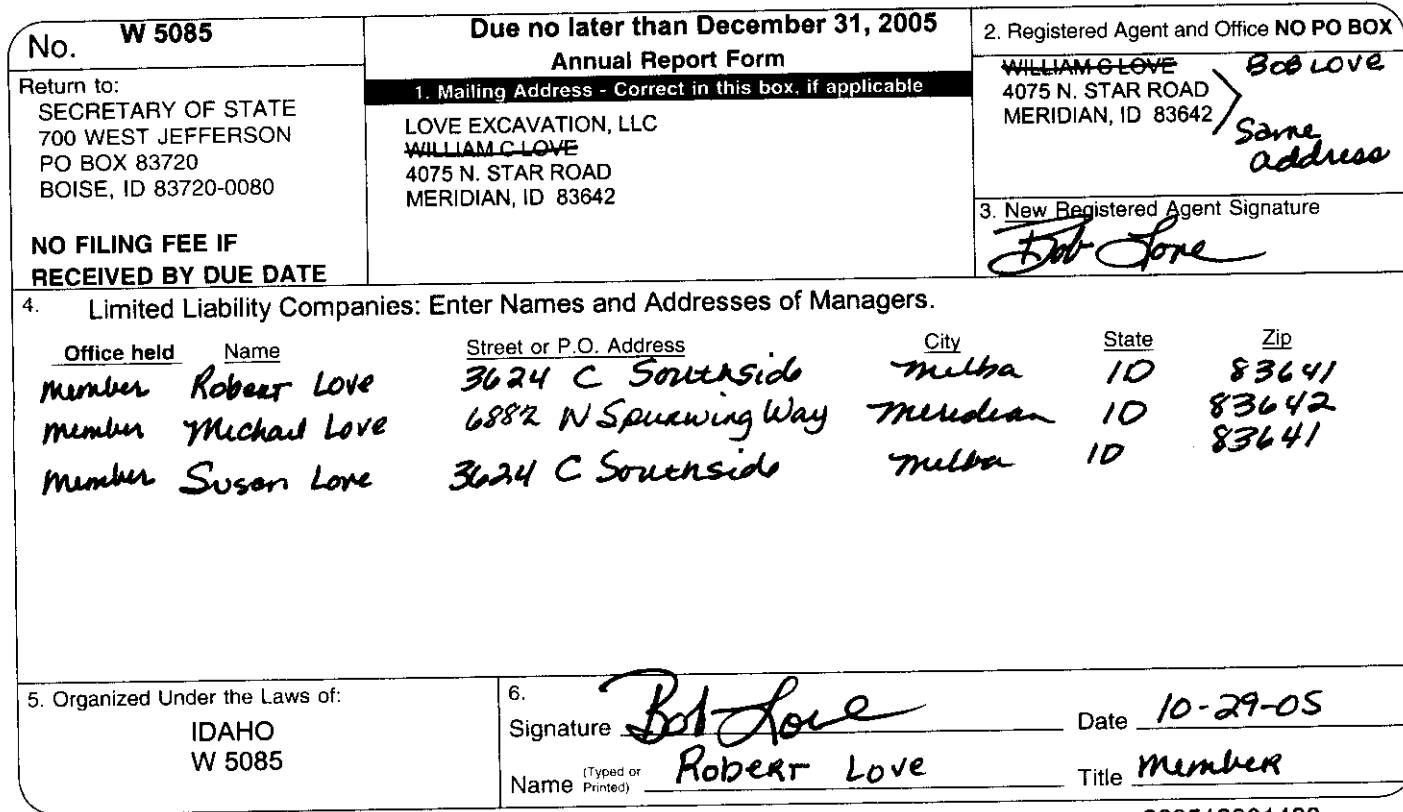 No. W 5085
Return to:
SECRETARY OF STATE
700 WEST JEFFERSON
PO BOX 83720
BOISE, ID 83720-0080
NO FILING FEE IF
RECEIVED BY DUE DATE
Due no later than December 31, 2005
Annual Report Form
1. Mailing Address - Correct in this box, if applicable
LOVE EXCAVATION, LLC
WILLIAM C LOVE
4075 N. STAR ROAD
MERIDIAN, ID 83642
2. Registered Agent and Office NO PO BOX
WILLIAM C LOVE Bob Love
4075 N. STAR ROAD
MERIDIAN, ID 83642
Same
address
3. New Registered Agent Signature
Bob Love
4. Limited Liability Companies: Enter Names and Addresses of Managers.
Office held Name Street or P.O. Address City State Zip
Member Robert Love 3624 C Southside Melba ID 83641
Member Michael Love 6882 N Spurwing Way Meridian ID 83642
Member Susan Love 3624 C Southside Melba ID 83641
5. Organized Under the Laws of:
IDAHO
W 5085
6.
Signature Bob Love Date 10-29-05
Name (Typed or Printed) Robert Love Title Member